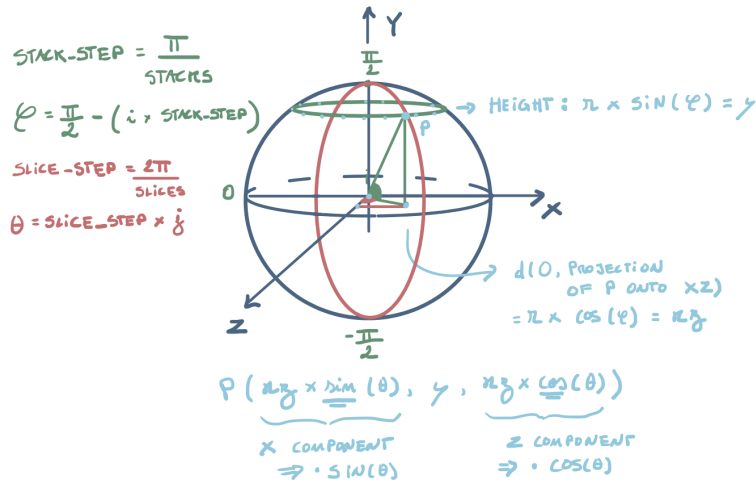 STACK_STEP = π / STACKS
φ = π/2 - (i × STACK-STEP)
SLICE-STEP = 2π / SLICES
θ = SLICE_STEP × j
Y
π/2
→ HEIGHT : r × SIN(φ) = y
P
0
X
Z
-π/2
d(O, PROJECTION
OF P ONTO XZ)
= r × COS(φ) = xz
P(xz × sin(θ), y, xz × cos(θ))
X COMPONENT
⇒ · SIN(θ)
Z COMPONENT
⇒ · COS(θ)